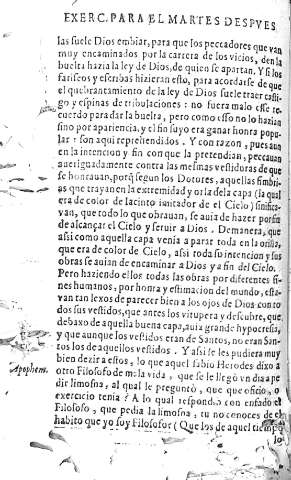 EXERC. PARA EL MARTES DESPVES
las suele Dios embiar, para que los peccadores que van
muy encaminados por la carrera de los vicios, den la
buelta hazia la ley de Dios, de quien se apartan. Y si los
fariseos y escribas hizieran esto, para acordarse de que
el quebrantamiento de la ley de Dios suele traer casti-
go y espinas de tribulaciones: no fuera malo esse re-
cuerdo para dar la buelta, pero como esso no lo hazian
sino por apariencia, y el fin suyo era ganar honra popu-
lar: son aqui reprehendidos. Y con razon, pues aun
en la intencion y fin con que la pretendian, peccauan
aueriguadamente contra las mesmas vestiduras de que
se honrauan, porq̃ segun los Dotores, aquellas fimbri-
as que trayan en la extremidad y orla de la capa (la qual
era de color de Iacinto imitador de el Cielo) sinifica-
van, que todo lo que obrauan, se auia de hazer por fin
de alcançar el Cielo y seruir a Dios. Demanera, que
assi como aquella capa venia a parar toda en la orilla,
que era de color de Cielo, assi toda su intencion y sus
obras se auian de encaminar a Dios y a fin del Cielo.
Pero haziendo ellos todas las obras por diferentes fi-
nes humanos, por honra y estimacion del mundo, esta-
van tan lexos de parecer bien a los ojos de Dios con to
dos sus vestidos, que antes los vitupera y descubre, que
debaxo de aquella buena capa, auia grande hypocresia,
y que aunque los vestidos eran de Santos, no eran San-
tos los de aquellos vestidos. Y assi se les pudiera muy
bien dezir a estos, lo que aquel sabio Herodes dixo a
Apophem.
otro Filosofo de mala vida, que se le llegò vn dia a pe
dir limosna, al qual le preguntò, que que oficio, o
exercicio tenia? A lo qual respondio con enfado el
Filosofo, que pedia la limosna, tu no conoces de el
habito que yo soy Filosofo? (Que los de aquel tiempo
lo